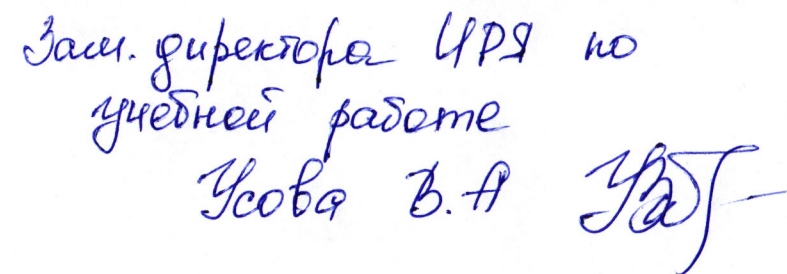 Зам. директора ИРЯ по
учебной работе
Усова В.А